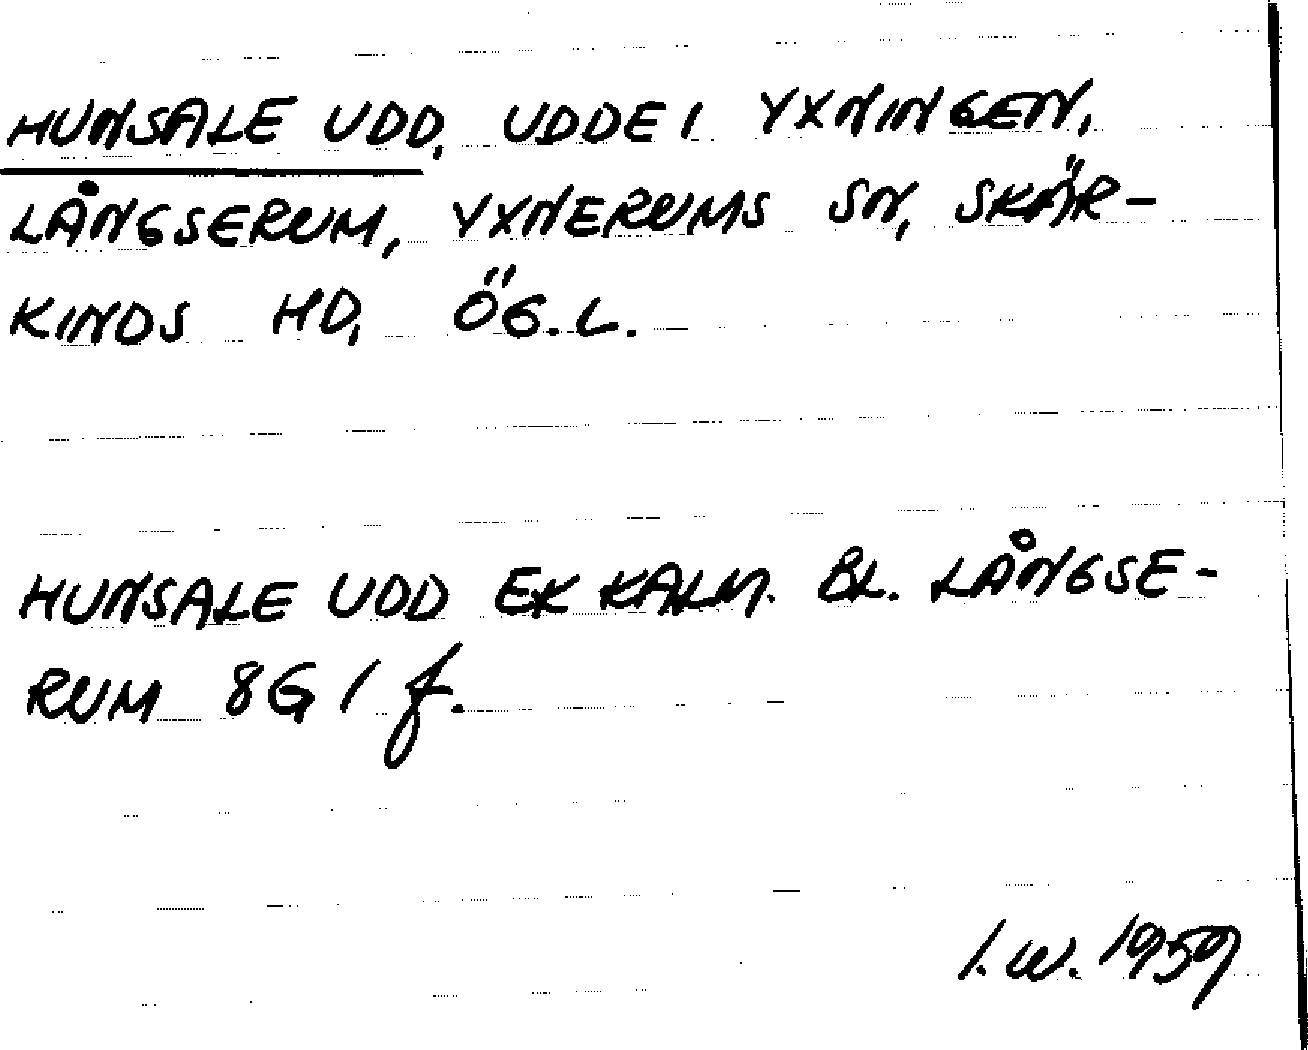 HUNSALE UDD, UDDE I YXNINGEN,
LÅNGSERUM, YXNERUMS SN, SKÄR-
KINDS HD, ÖG.L.
HUNSALE UDD EK KALM. BL. LÅNGSE-
RUM 8G 1 f.
I.W. 1959